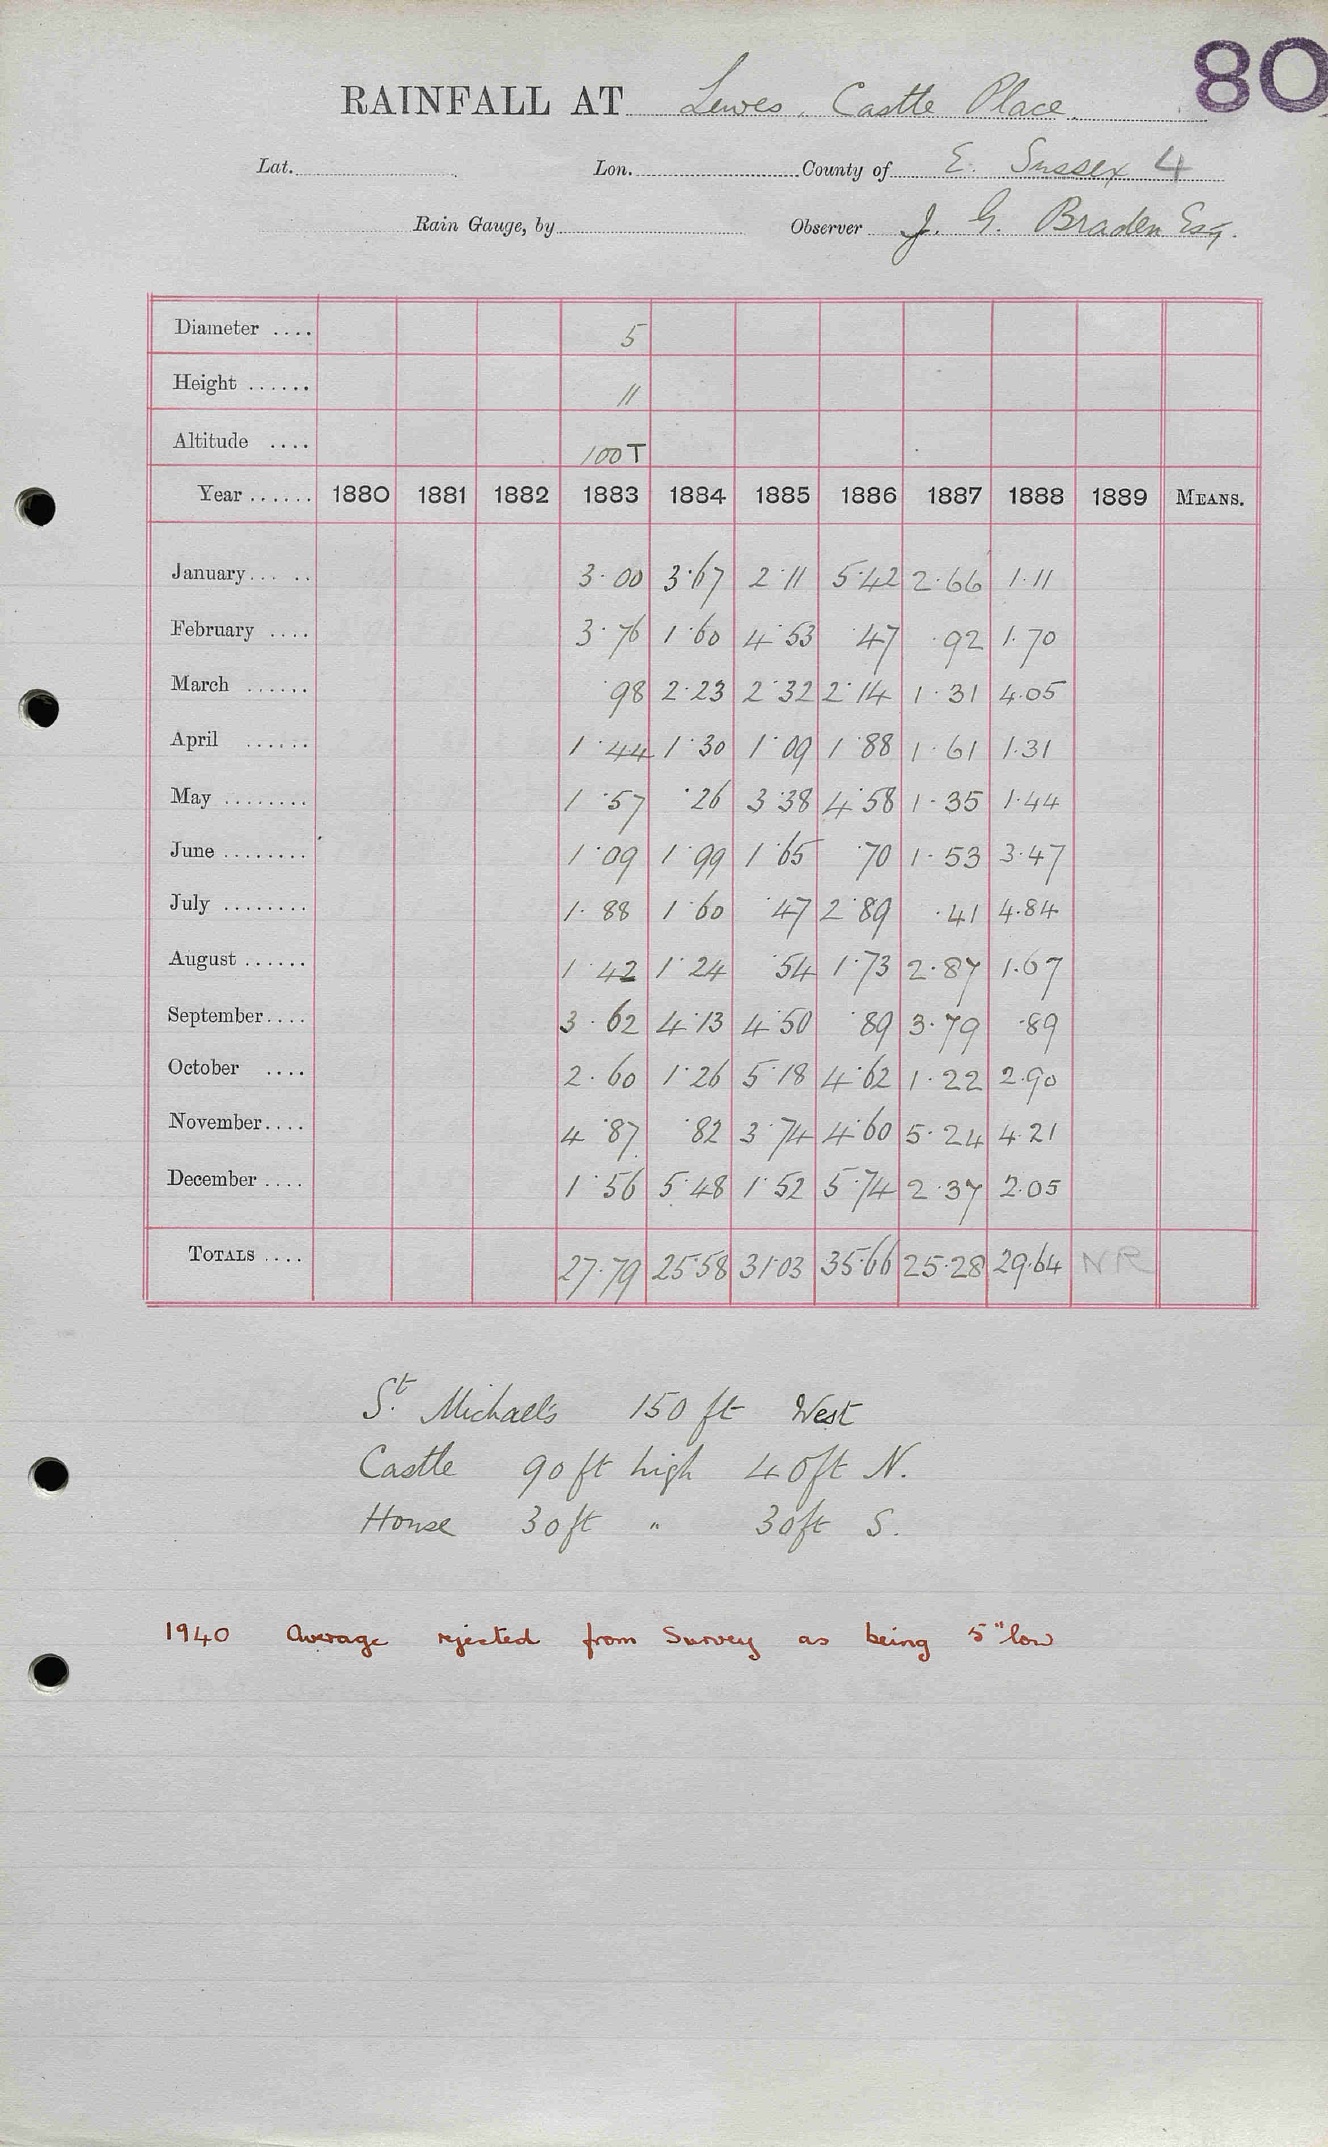 80
RAINFALL AT Lewes, Castle Place.
Lat. Lon. County of E. Sussex 4
Rain Gauge, by Observer J. G. Braden Esq.
Diameter .... 5
Height ...... 11
Altitude .... 100 T
Year ...... 1880 1881 1882 1883 1884 1885 1886 1887 1888 1889 MEANS.
January ... .. 3.00 3.67 2.11 5.42 2.66 1.11
February .... 3.76 1.60 4.53 .47 .92 1.70
March ...... .98 2.23 2.32 2.14 1.31 4.05
April ...... 1.44 1.30 1.09 1.88 1.61 1.31
May ........ 1.57 .26 3.38 4.58 1.35 1.44
June ........ 1.09 1.99 1.65 .70 1.53 3.47
July ........ 1.88 1.60 .47 2.89 .41 4.84
August ...... 1.42 1.24 .54 1.73 2.87 1.67
September .... 3.62 4.13 4.50 .89 3.79 .89
October .... 2.60 1.26 5.18 4.62 1.22 2.90
November .... 4.87 .82 3.74 4.60 5.24 4.21
December .... 1.56 5.48 1.52 5.74 2.37 2.05
TOTALS .... 27.79 25.58 31.03 35.66 25.28 29.64 NR
St. Michael's 150 ft West
Castle 90 ft high 40 ft N.
House 30 ft " 30 ft S.
1940 Average rejected from Survey as being 5" low